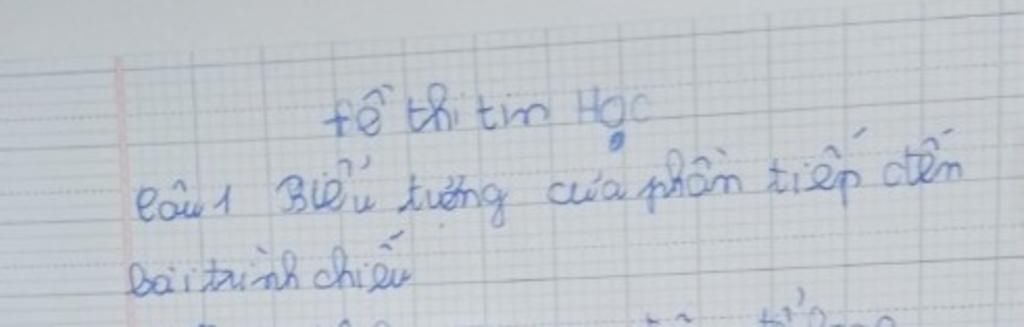 Đề thi tin Học
Câu 1 Biểu tượng của phần tiếp đến
bài trình chiếu